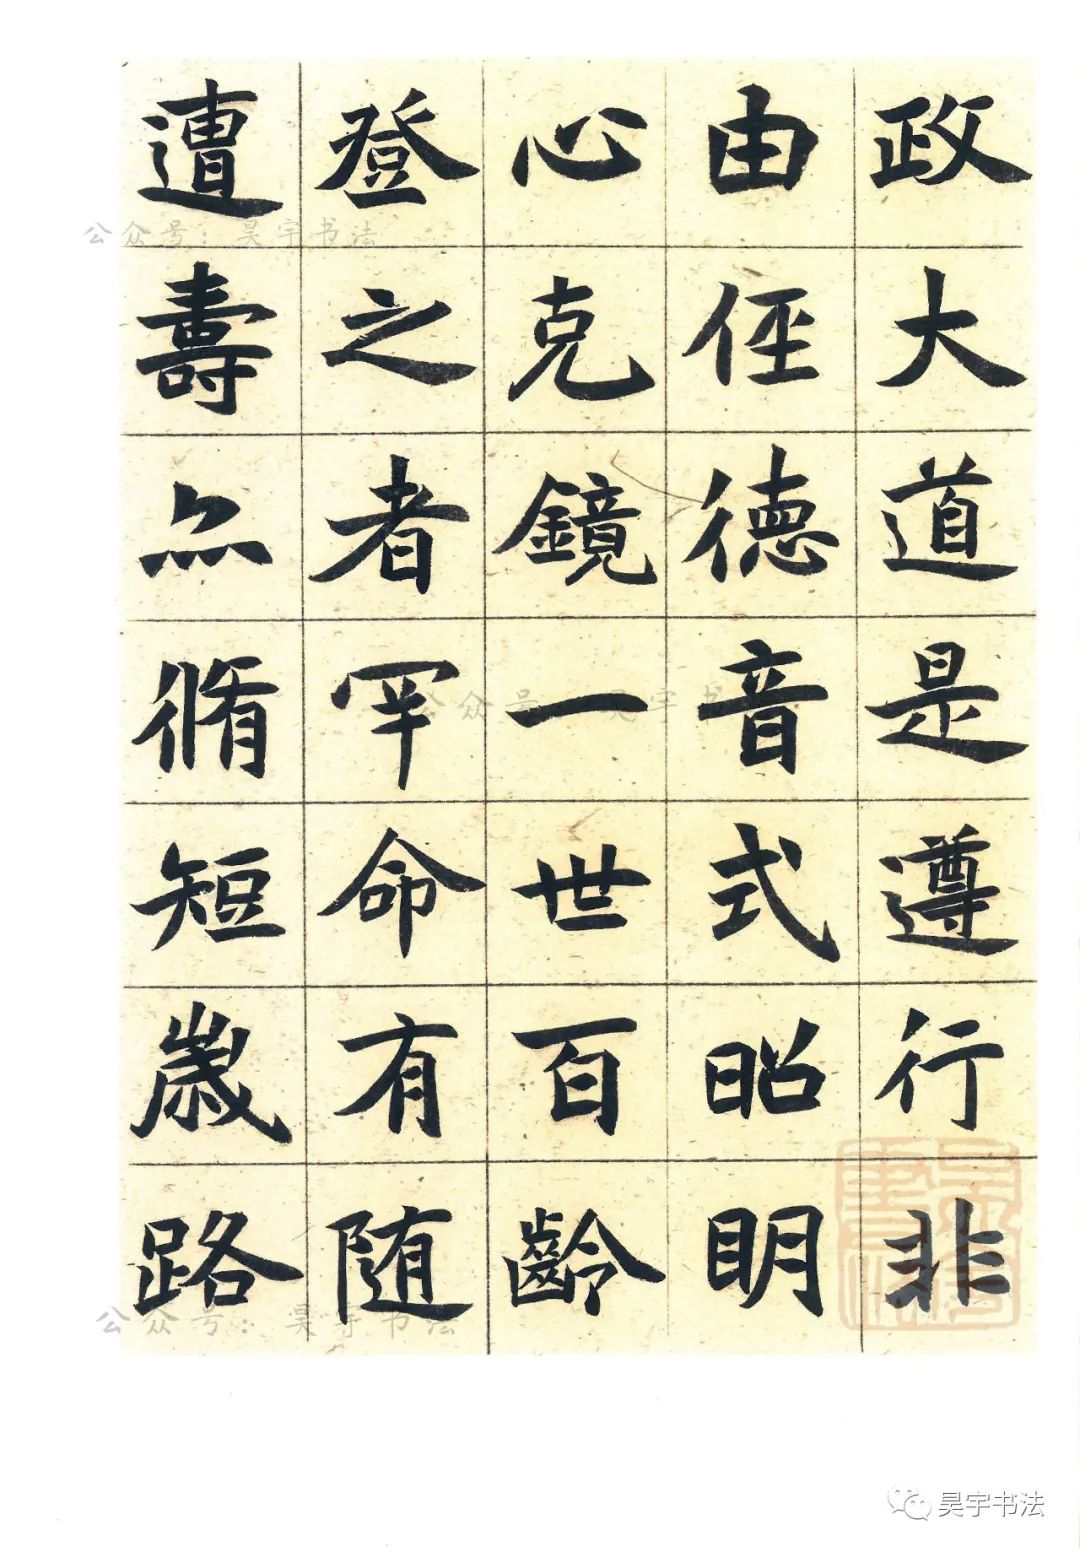 政大道是遵行非
由俓德音式昭明
心克鏡一世百齡
登之者罕命有随
遭壽亦脩短歳路
公众号：昊宇书法
公众号：昊宇书
公众号：昊宇书法
昊宇书法